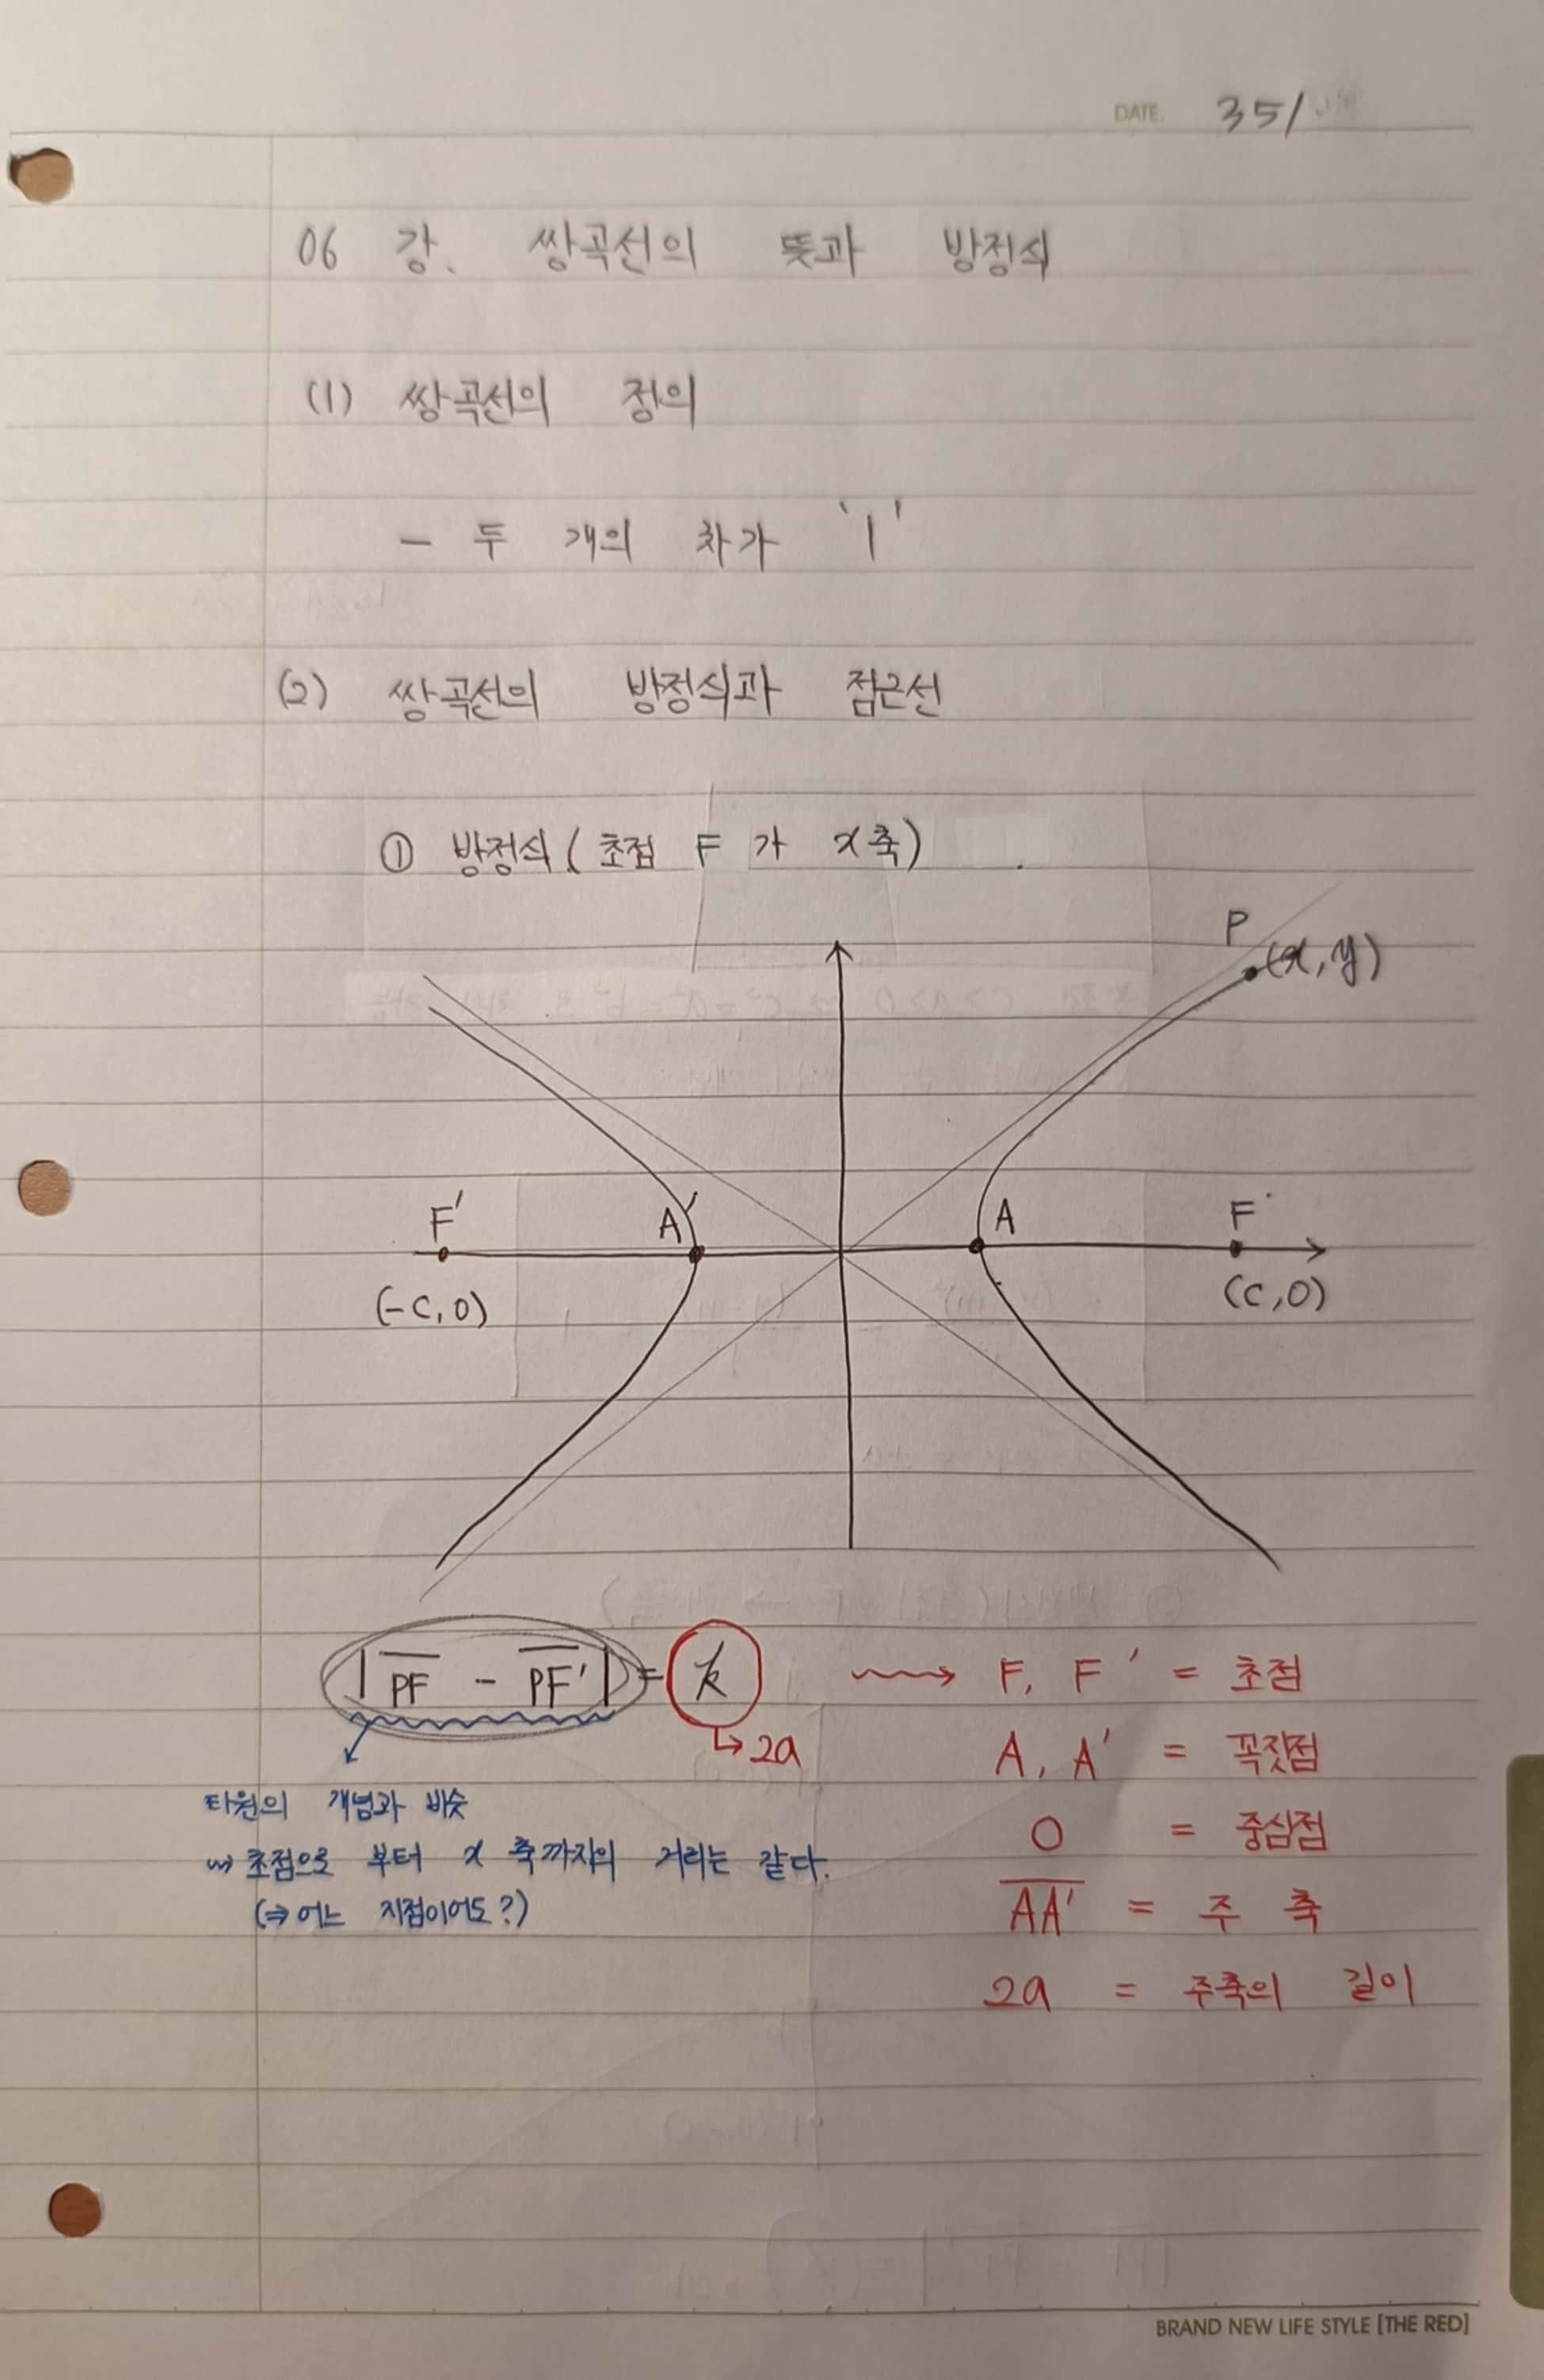 DATE. 35/
06 강. 쌍곡선의 뜻과 방정식
(1) 쌍곡선의 정의
- 두 개의 차가 '1'
(2) 쌍곡선의 방정식과 점근선
① 방정식(초점 F가 x축)
P
(x,y)
F' A' A F
(-c,0) (c,0)
|PF - PF'| = k ⇝ F, F' = 초점
↳ 2a A, A' = 꼭짓점
타원의 개념과 비슷
O = 중심점
⇝ 초점으로 부터 x 축까지의 거리는 같다.
(⇒ 어느 지점이어도?)
AA' = 주 축
2a = 주축의 길이
BRAND NEW LIFE STYLE [THE RED]